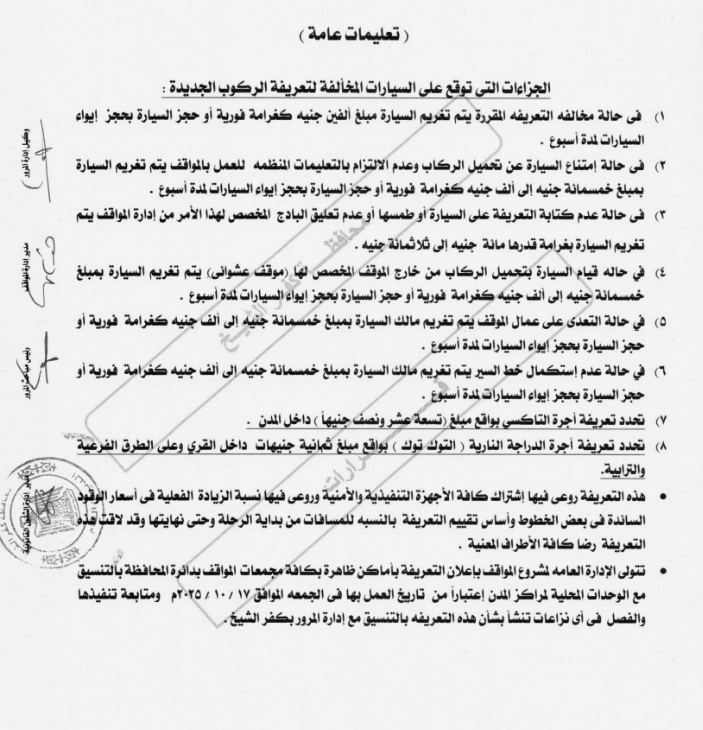 ( تعليمات عامة )
الجزاءات التى توقع على السيارات المخالفة لتعريفة الركوب الجديدة :
١) فى حالة مخالفه التعريفه المقررة يتم تغريم السيارة مبلغ ألفين جنيه كغرامة فورية أو حجز السيارة بحجز إيواء
السيارات لمدة أسبوع .
٢) فى حالة إمتناع السيارة عن تحميل الركاب وعدم الالتزام بالتعليمات المنظمه للعمل بالمواقف يتم تغريم السيارة
بمبلغ خمسمائة جنيه إلى ألف جنيه كغرامة فورية أو حجز السيارة بحجز إيواء السيارات لمدة أسبوع .
٣) فى حالة عدم كتابة التعريفة على السيارة أو طمسها أو عدم تعليق البادج المخصص لهذا الأمر من إدارة المواقف يتم
تغريم السيارة بغرامة قدرها مائة جنيه إلى ثلاثمائة جنيه .
٤) في حاله قيام السيارة بتحميل الركاب من خارج الموقف المخصص لها (موقف عشوائى) يتم تغريم السيارة بمبلغ
خمسمائة جنيه إلى ألف جنيه كغرامة فورية أو حجز السيارة بحجز إيواء السيارات لمدة أسبوع .
٥) في حالة التعدى على عمال الموقف يتم تغريم مالك السيارة بمبلغ خمسمائة جنيه إلى ألف جنيه كغرامة فورية أو
حجز السيارة بحجز إيواء السيارات لمدة أسبوع .
٦) في حالة عدم إستكمال خط السير يتم تغريم مالك السيارة بمبلغ خمسمائة جنيه إلى ألف جنيه كغرامة فورية أو
حجز السيارة بحجز إيواء السيارات لمدة أسبوع .
٧) تحدد تعريفة أجرة التاكسي بواقع مبلغ (تسعة عشر ونصف جنيهاً) داخل المدن .
٨) تحدد تعريفة أجرة الدراجة النارية ( التوك توك ) بواقع مبلغ ثمانية جنيهات داخل القري وعلى الطرق الفرعية
والترابية.
• هذه التعريفة روعى فيها إشتراك كافة الأجهزة التنفيذية والأمنية وروعى فيها نسبة الزيادة الفعلية فى أسعار الوقود
السائدة فى بعض الخطوط وأساس تقييم التعريفة بالنسبه للمسافات من بداية الرحلة وحتى نهايتها وقد لاقت هذه
التعريفة رضا كافة الأطراف المعنية .
• تتولى الإدارة العامه لمشروع المواقف بإعلان التعريفة بأماكن ظاهرة بكافة مجمعات المواقف بدائرة المحافظة بالتنسيق
مع الوحدات المحلية لمراكز المدن إعتباراً من تاريخ العمل بها فى الجمعه الموافق ١٧ / ١٠ / ٢٠٢٥م ومتابعة تنفيذها
والفصل فى أى نزاعات تنشأ بشأن هذه التعريفه بالتنسيق مع إدارة المرور بكفر الشيخ .
وكيل إدارة المرور
مدير إدارة المواقف
رئيس مباحث المرور
محافظة كفر الشيخ